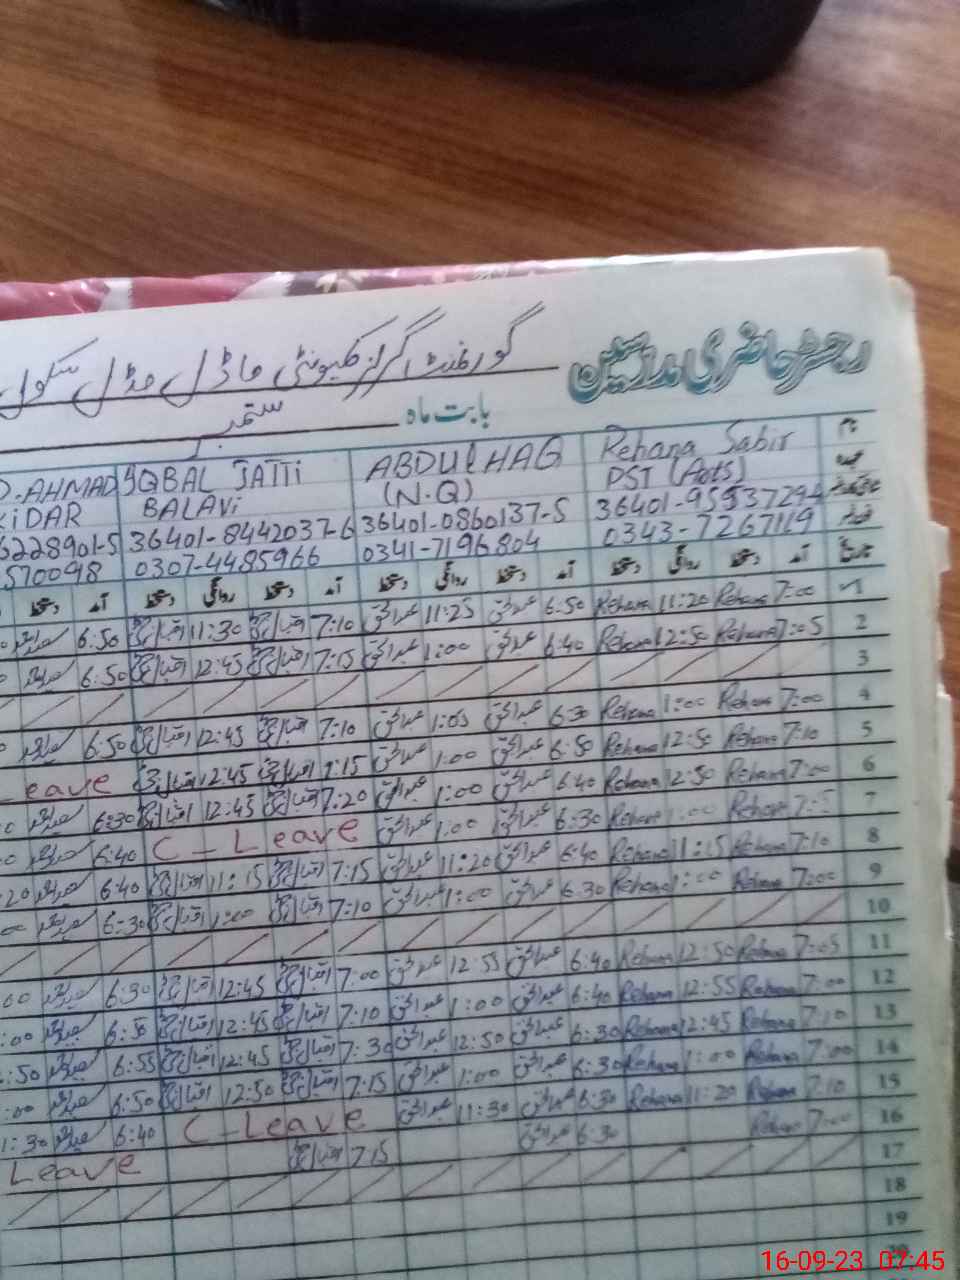 رجسٹر حاضری مدرسین
گورنمنٹ گرلز کمیونٹی ماڈل مڈل سکول
بابت ماہ ستمبر
نام Rehana Sabir ABDUl HAQ IQBAL JATTI D-AHMAD
عہدہ PST (Arts) (N.Q) BALAVi KiDAR
36401-95537294 36401-0860137-5 36401-8442037-6 6228901-5
0343-7267119 0341-7196804 0307-4485966 570098
تاریخ آمد دستخط روانگی دستخط آمد دستخط روانگی دستخط آمد دستخط روانگی دستخط آمد دستخط
1 7:00 Rehana 11:20 Rehana 6:50 عبدالحق 11:25 عبدالحق 7:10 11:30 6:50
2 7:05 Rehana 12:50 Rehana 6:40 عبدالحق 1:00 عبدالحق 7:15 12:45 6:50
3
4 7:00 Rehana 1:00 Rehana 6:30 عبدالحق 1:05 عبدالحق 7:10 12:45 6:50
5 7:10 Rehana 12:50 Rehana 6:50 عبدالحق 1:00 عبدالحق 7:15 12:45 Leave
6 7:00 Rehana 12:50 Rehana 6:40 عبدالحق 1:00 عبدالحق 7:20 12:45 6:30
7 Rehana 1:00 Rehana 6:30 عبدالحق 1:00 عبدالحق C-Leave 6:40
8 7:10 Rehana 11:15 Rehana 6:40 عبدالحق 11:20 عبدالحق 7:15 11:15 6:40 :20
9 7:00 Rehana 1:00 Rehana 6:30 عبدالحق 1:00 عبدالحق 7:10 1:00 6:30 :00
10
11 7:05 Rehana 12:50 Rehana 6:40 عبدالحق 12:55 عبدالحق 7:00 12:45 6:30 :00
12 7:00 Rehana 12:55 Rehana 6:40 عبدالحق 1:00 عبدالحق 7:10 12:45 6:50 :00
13 7:10 Rehana 12:45 Rehana 6:30 عبدالحق 12:50 عبدالحق 7:30 12:45 6:55 :50
14 7:00 Rehana 1:00 Rehana 6:30 عبدالحق 1:00 عبدالحق 7:15 12:50 6:50 :00
15 7:10 Rehana 11:20 Rehana 6:30 عبدالحق 11:30 عبدالحق C-Leave 6:40 1:30
16 7:00 Rehana 6:30 عبدالحق 7:15 Leave
17
18
19
20
16-09-23 07:45